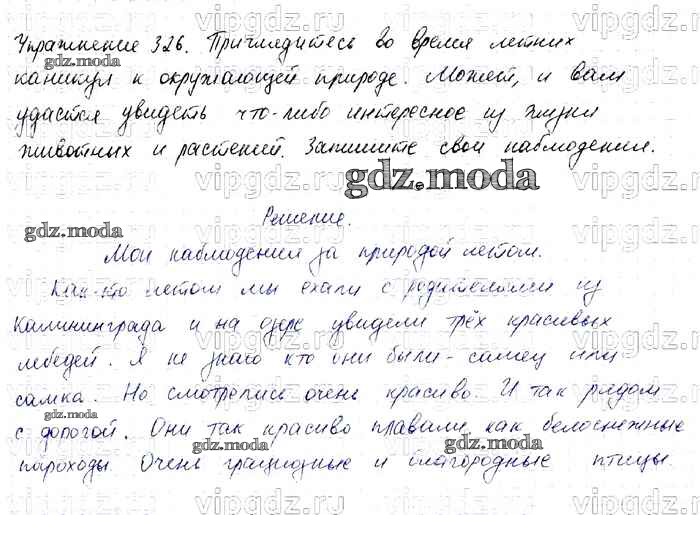 Упражнение 326. Приглядитесь во время летних
каникул к окружающей природе. Может, и вам
удастся увидеть что-либо интересное из жизни
животных и растений. Запишите свои наблюдения.
gdz.moda
Решение.
Мои наблюдения за природой летом.
Как-то летом мы ехали с родителями из
Калининграда и на озере увидели трёх красивых
лебедей. Я не знаю кто они были - самец или
самка. Но смотрелись очень красиво. И так рядом
с дорогой. Они так красиво плавали, как белоснежные
пароходы. Очень грациозные и благородные птицы